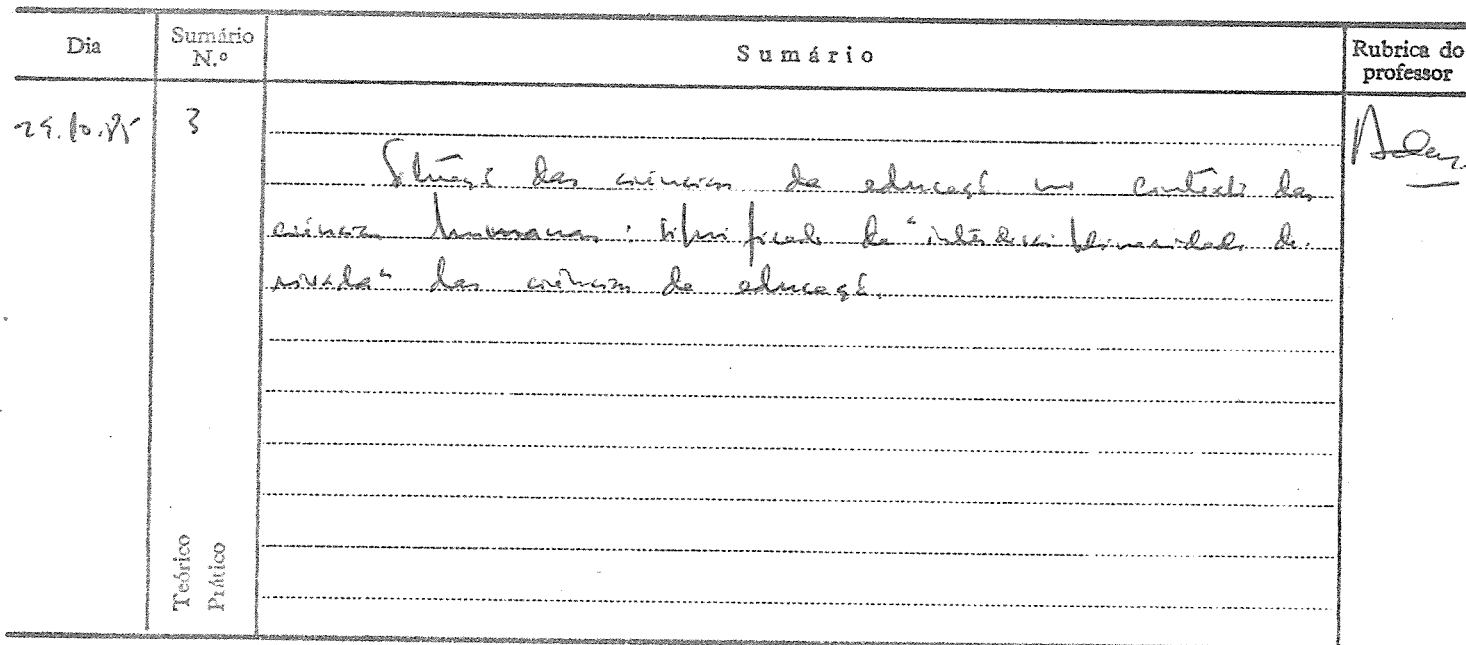 Dia
Sumário
N.º
Sumário
Rubrica do
professor
3
Situação das ciências da educação no contexto das
ciências humanas: significado da "interdisciplinaridade de-
rivada" das ciências da educação.
Teórico
Prático